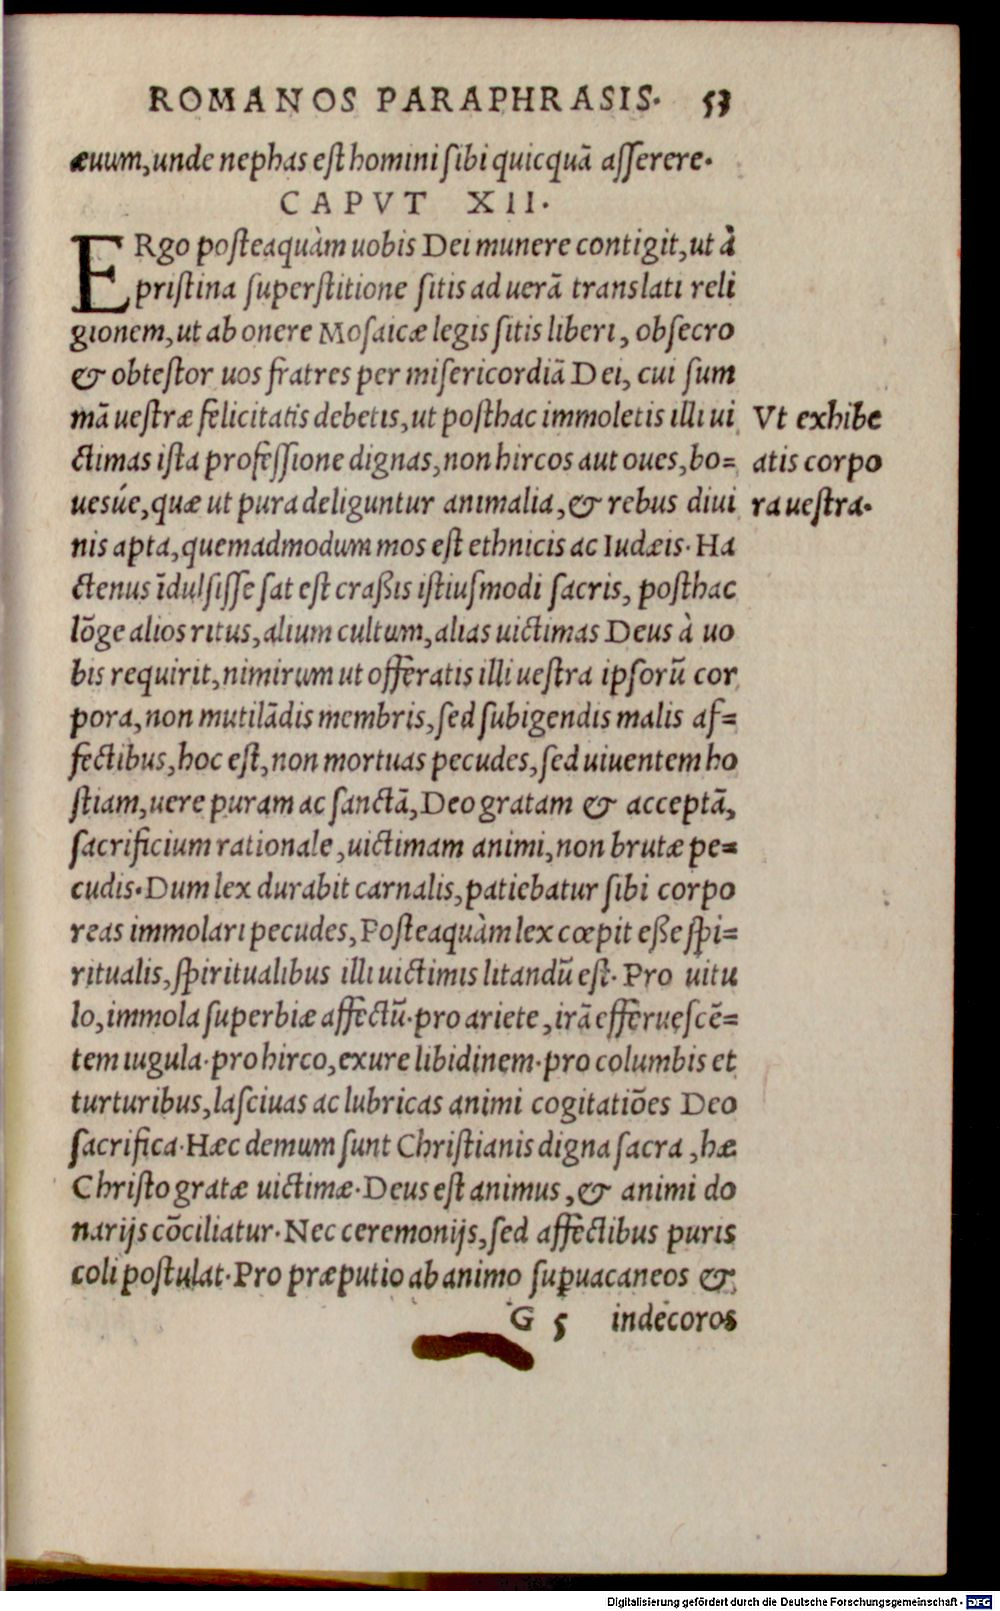 ROMANOS PARAPHRASIS. 53
æuum, unde nephas est homini sibi quicquā asserere.
CAPVT XII.
ERgo posteaquàm uobis Dei munere contigit, ut à
pristina superstitione sitis ad uerā translati reli
gionem, ut ab onere Mosaicæ legis sitis liberi, obsecro
& obtestor uos fratres per misericordiā Dei, cui sum
mā uestræ felicitatis debetis, ut posthac immoletis illi ui
ctimas ista professione dignas, non hircos aut oues, bo=
uesúe, quæ ut pura deliguntur animalia, & rebus diui
nis apta, quemadmodum mos est ethnicis ac Iudæis. Ha
ctenus īdulsisse sat est craßis istiusmodi sacris, posthac
lōge alios ritus, alium cultum, alias uictimas Deus à uo
bis requirit, nimirum ut offeratis illi uestra ipsorū cor
pora, non mutilādis membris, sed subigendis malis af=
fectibus, hoc est, non mortuas pecudes, sed uiuentem ho
stiam, uere puram ac sanctā, Deo gratam & acceptā,
sacrificium rationale, uictimam animi, non brutæ pe=
cudis. Dum lex durabit carnalis, patiebatur sibi corpo
reas immolari pecudes, Posteaquàm lex cœpit eße spi=
ritualis, spiritualibus illi uictimis litandū est. Pro uitu
lo, immola superbiæ affectū. pro ariete, irā efferuescē=
tem iugula. pro hirco, exure libidinem. pro columbis et
turturibus, lasciuas ac lubricas animi cogitatiōes Deo
sacrifica. Hæc demum sunt Christianis digna sacra, hæ
Christo gratæ uictimæ. Deus est animus, & animi do
narijs cōciliatur. Nec ceremonijs, sed affectibus puris
coli postulat. Pro præputio ab animo suꝑuacaneos &
G 5 indecoros
Vt exhibe
atis corpo
ra uestra.
Digitalisierung gefördert durch die Deutsche Forschungsgemeinschaft - DFG